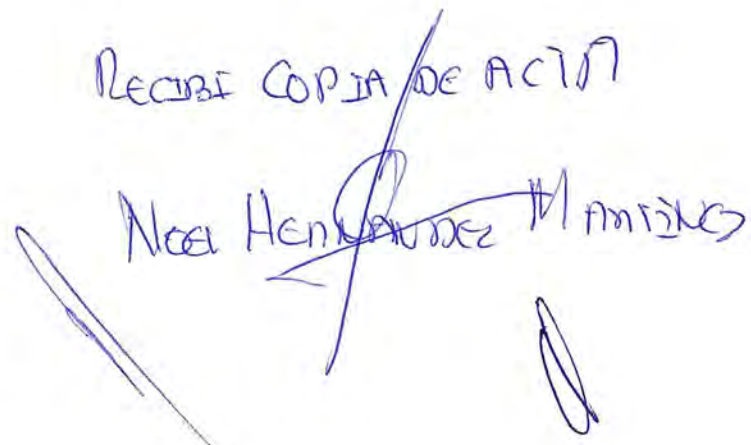 RECIBI COPIA DE ACTA
NOEL HERNANDEZ MARTINEZ